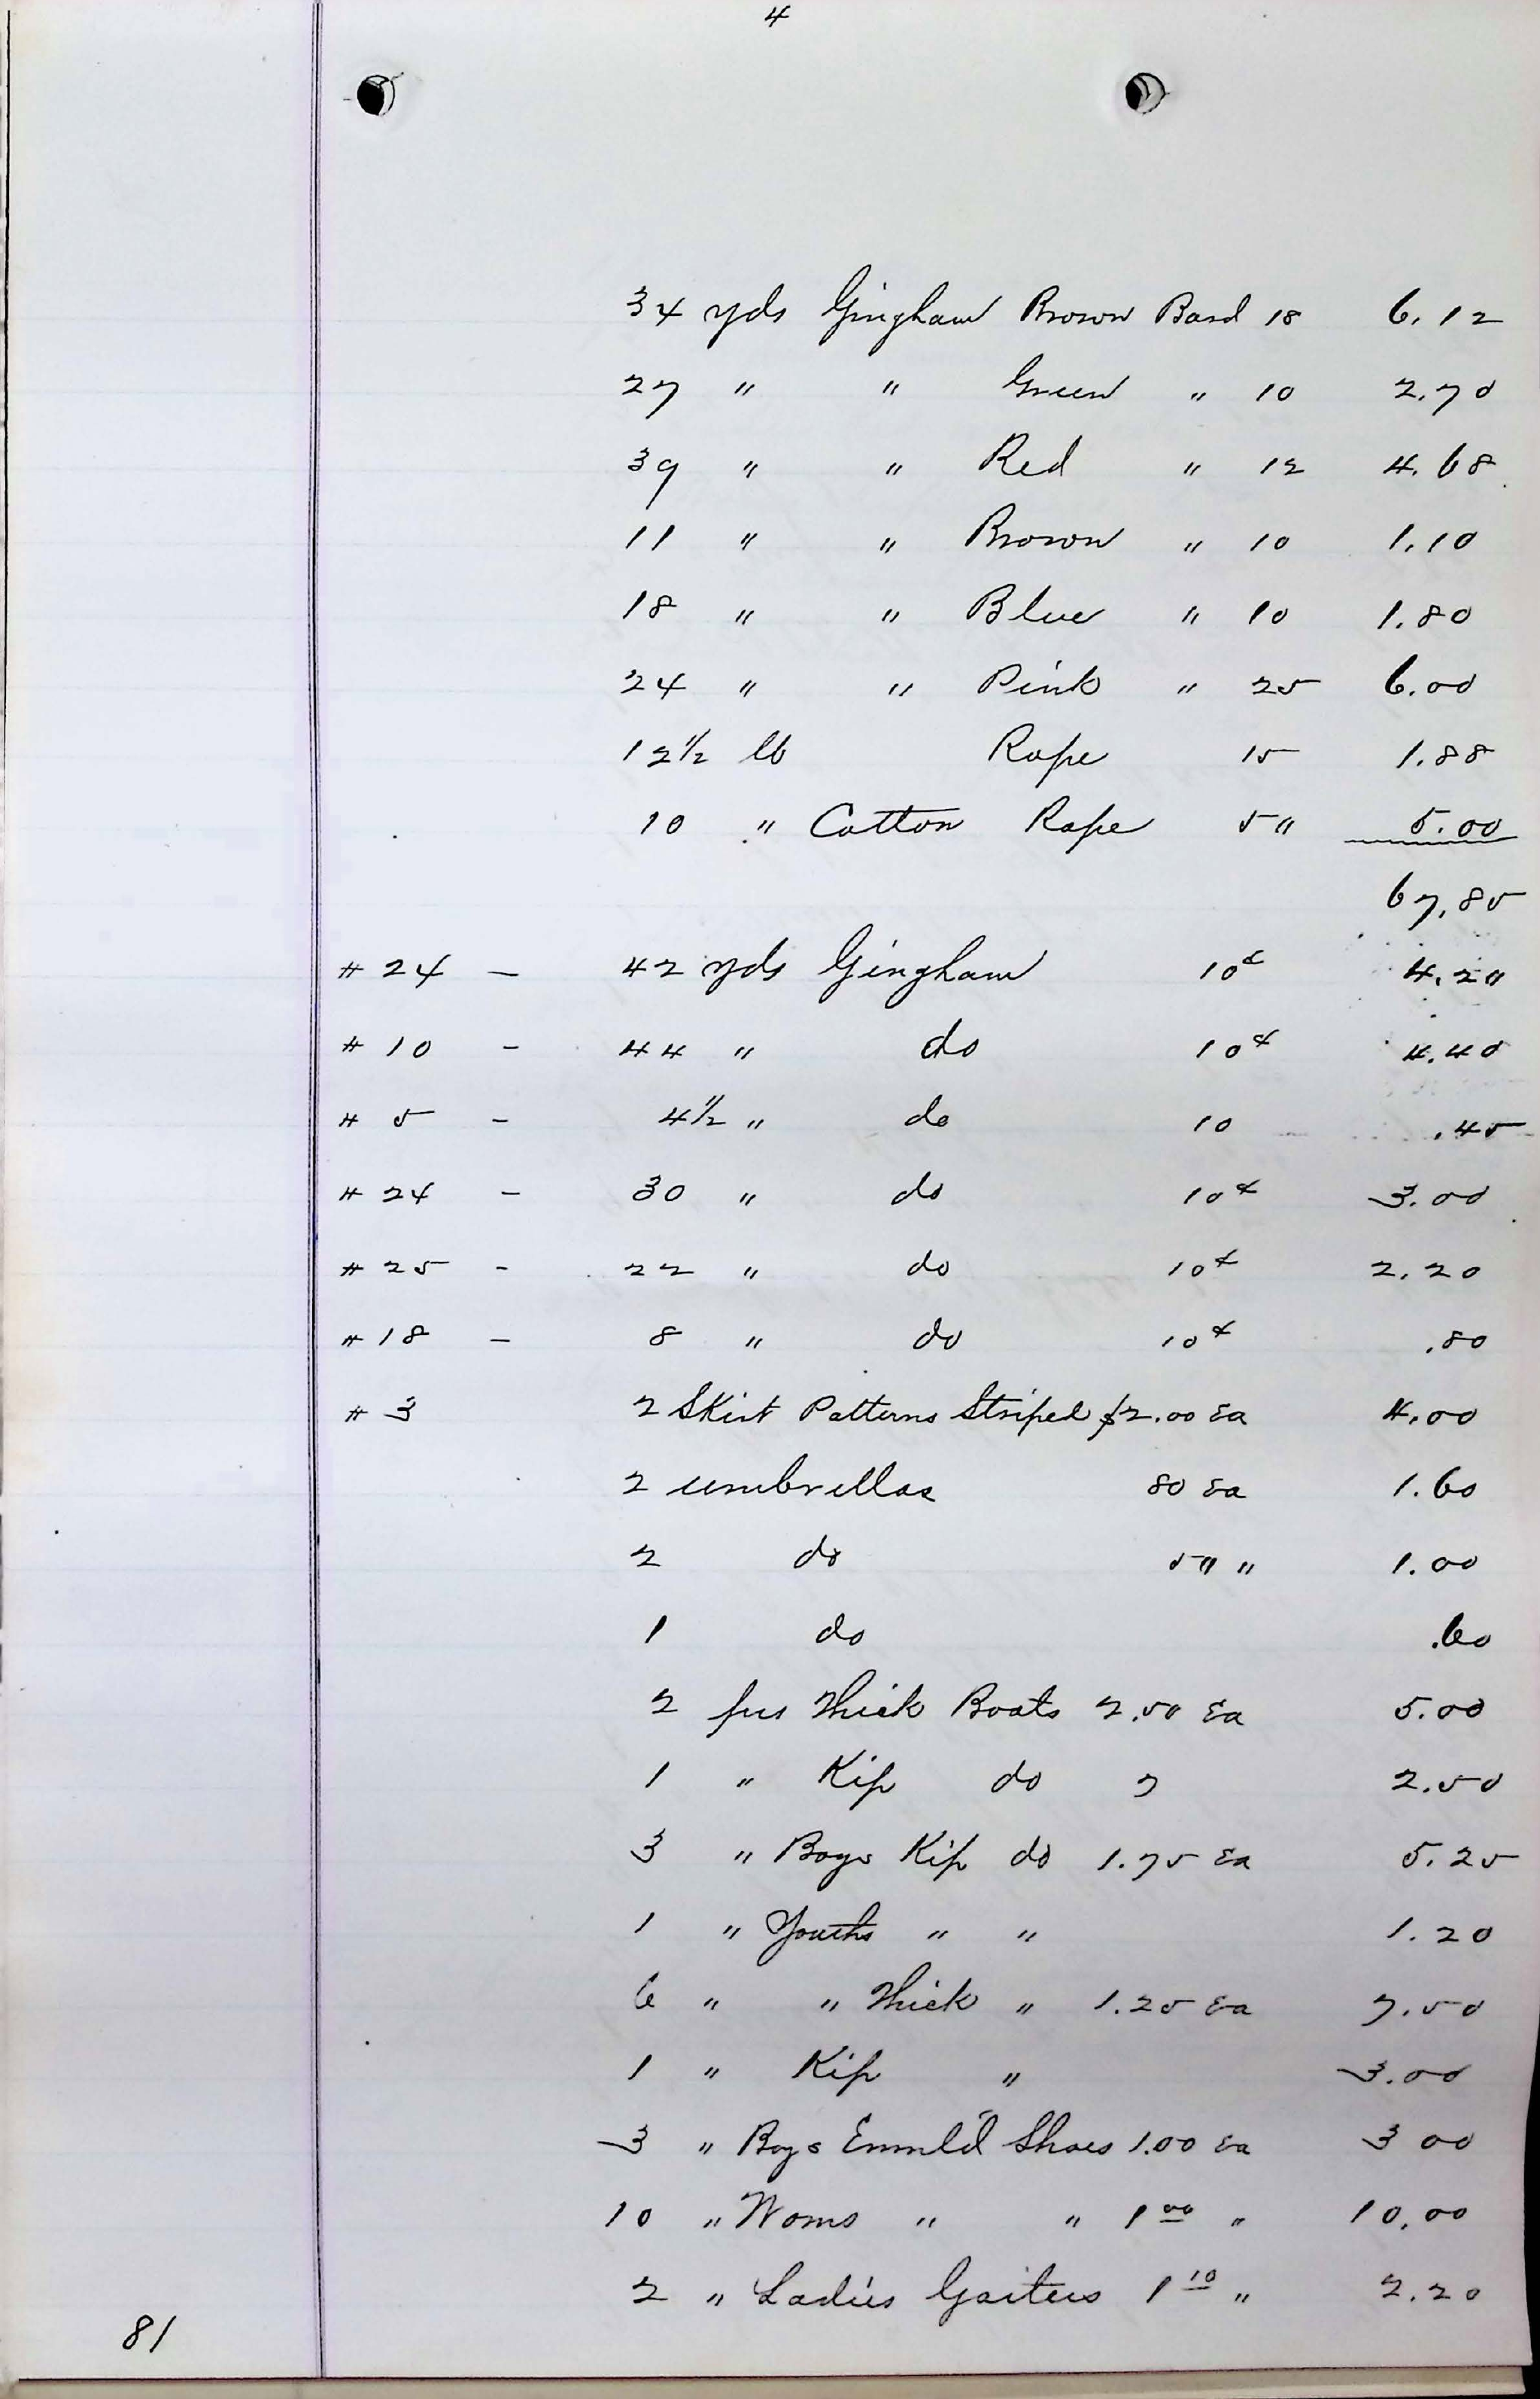 4
34 yds Gingham Brown Band 18 6.12
27 " " Green " 10 2.70
39 " " Red " 12 4.68
11 " " Brown " 10 1.10
18 " " Blue " 10 1.80
24 " " Pink " 25 6.00
12 1/2 lb Rope 15 1.88
10 " Cotton Rope 50 5.00
67.85
# 24 - 42 yds Gingham 10¢ 4.20
# 10 - 44 " do 10¢ 4.40
# 5 - 4 1/2 " do 10 .45
# 24 - 30 " do 10¢ 3.00
# 25 - 22 " do 10¢ 2.20
# 18 - 8 " do 10¢ .80
# 3 2 Skirt Patterns Striped $2.00 Ea 4.00
2 umbrellas 80 Ea 1.60
2 do 50 " 1.00
1 do .60
2 prs Thick Boots 2.50 Ea 5.00
1 " Kip do ? 2.50
3 " Boys Kip do 1.75 Ea 5.25
1 " Youths " " 1.20
6 " " Thick " 1.25 Ea 7.50
1 " Kip " 3.00
3 " Boys Enmld Shoes 1.00 Ea 3 00
10 " Woms " " 1 00 " 10.00
2 " Ladies Gaiters 1 10 " 2.20
81